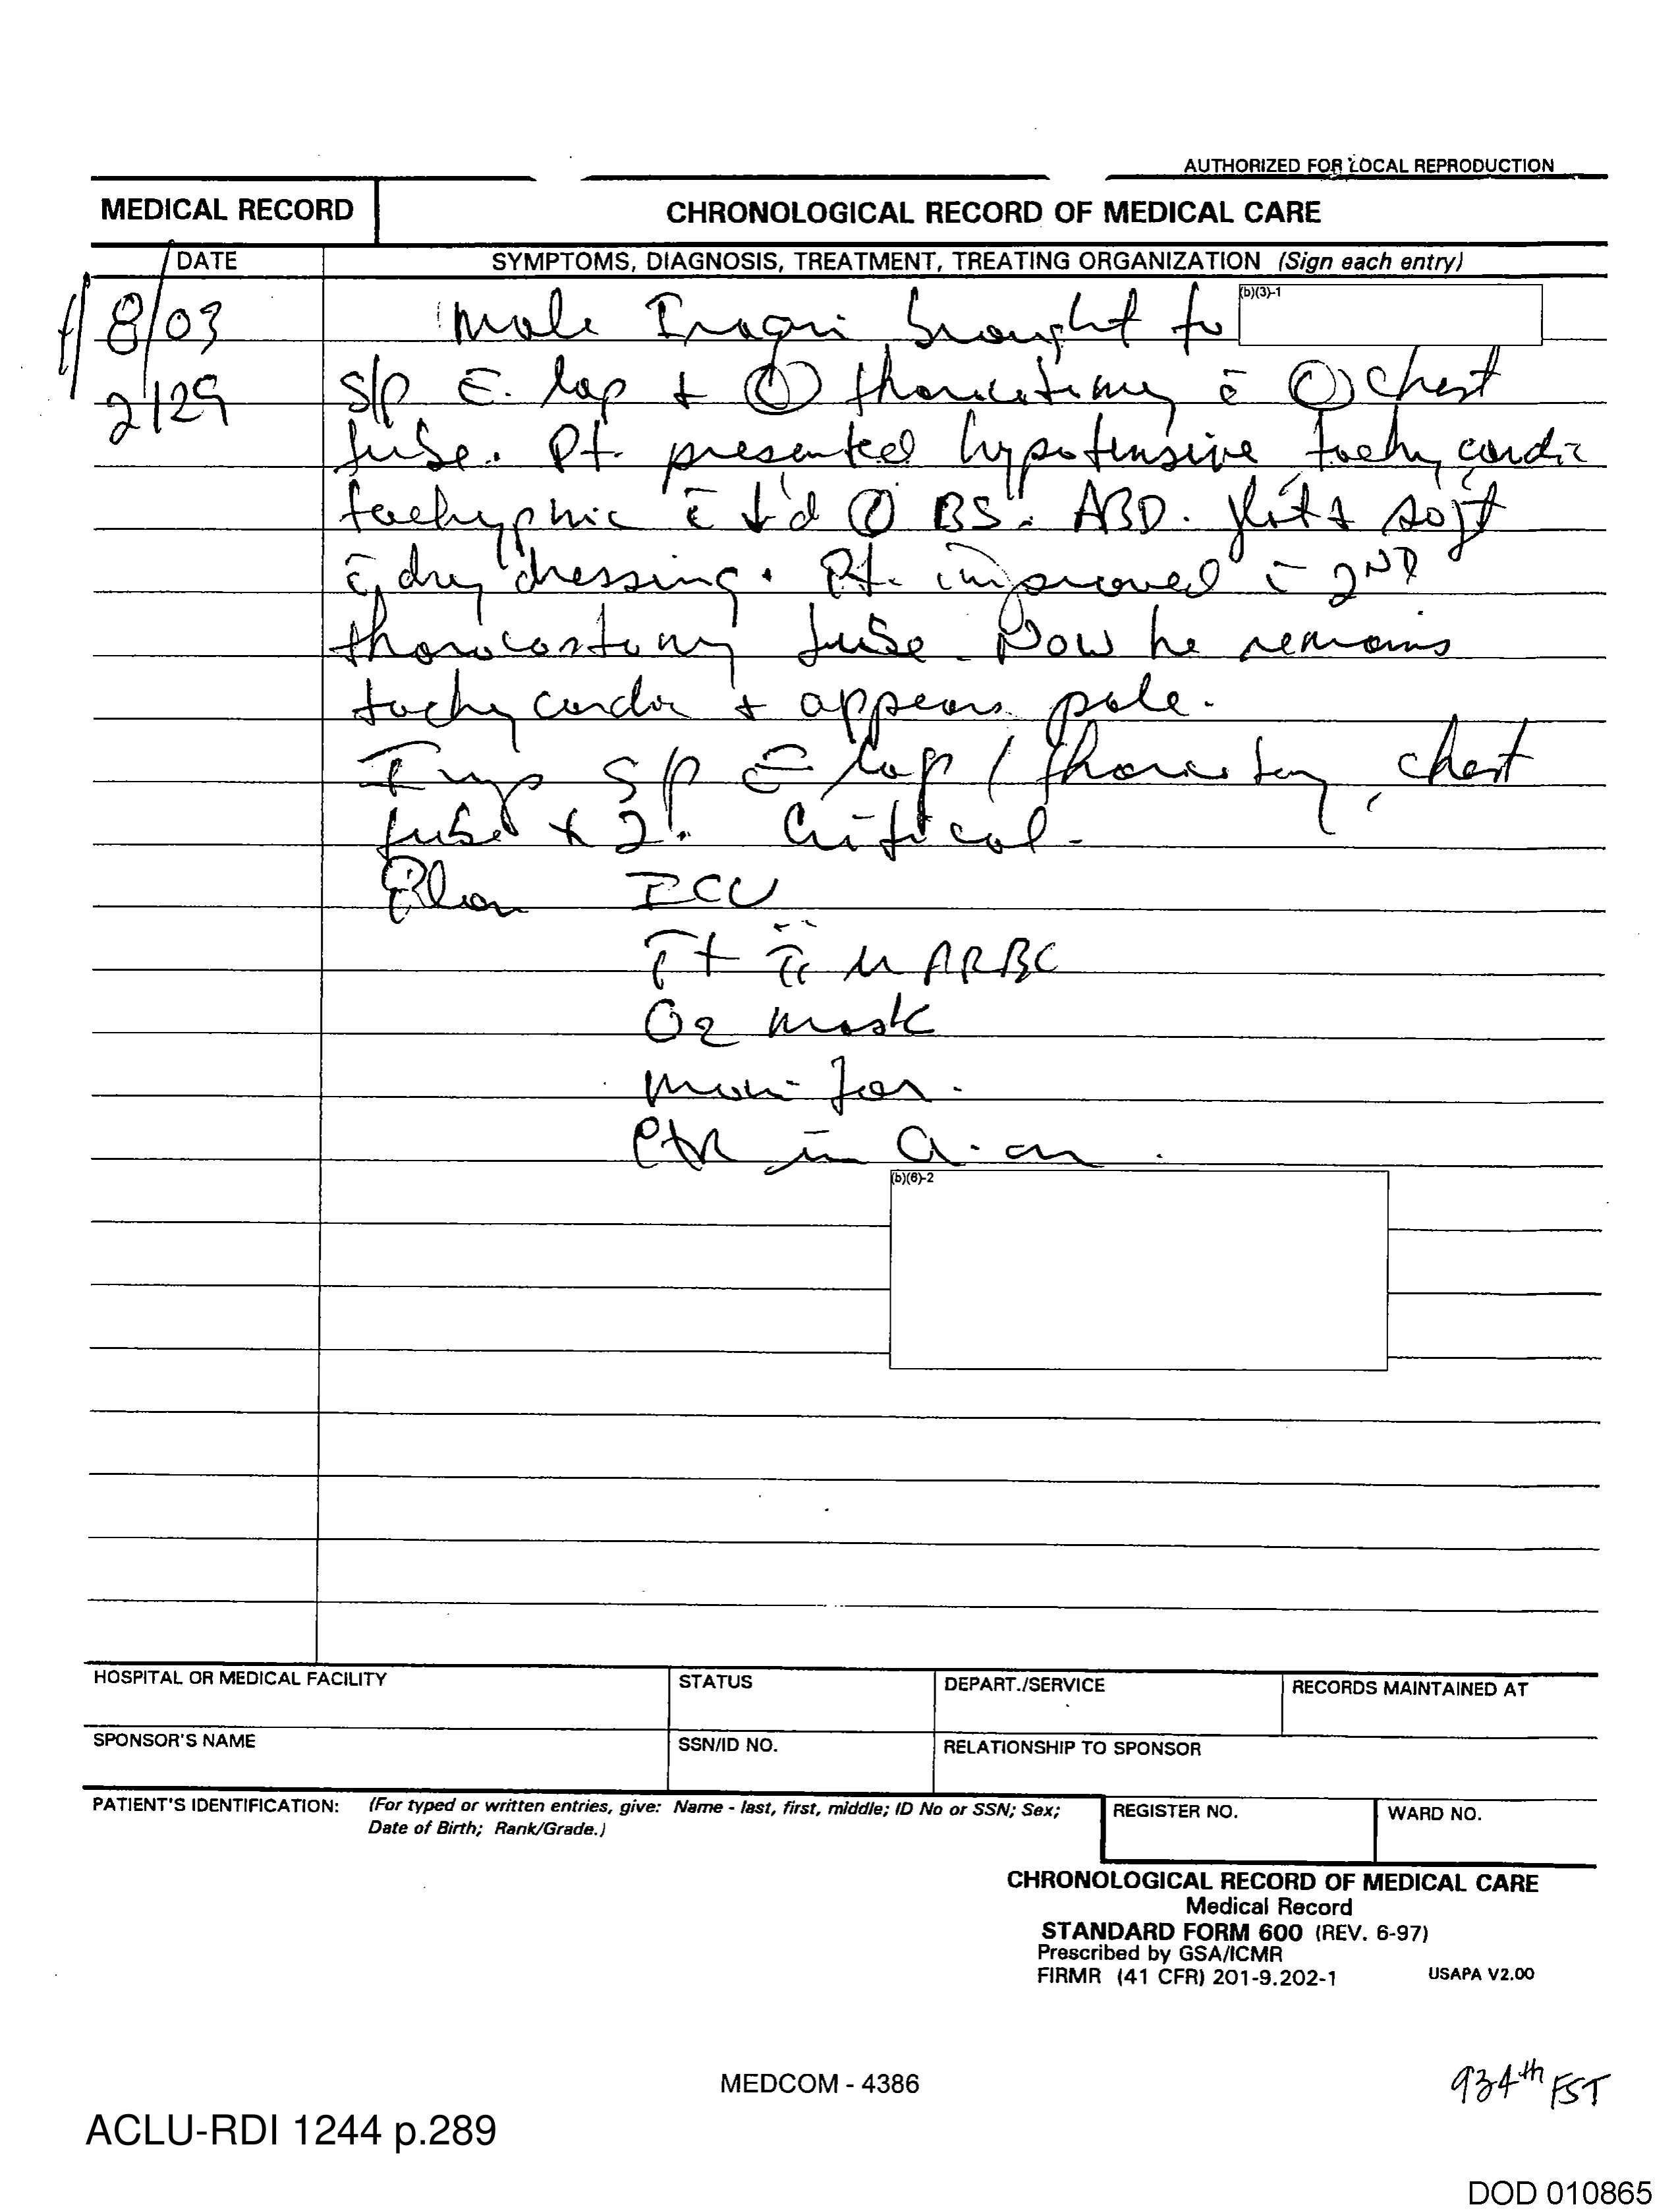 AUTHORIZED FOR LOCAL REPRODUCTION
MEDICAL RECORD
CHRONOLOGICAL RECORD OF MEDICAL CARE
DATE
SYMPTOMS, DIAGNOSIS, TREATMENT, TREATING ORGANIZATION (Sign each entry)
8/03 Male Iraqi brought to (b)(3)-1
2129 s/p E. lap + Ⓛ thoracotomy c̄ Ⓛ chest
tube. Pt. presented hypotensive tachycardic
tachypnic c̄ ↓'d Ⓛ BS. ABD. flat + soft
c̄ dry dressing. Pt. improved c̄ 2ND
thoracostomy tube. Now he remains
tachycardic + appears pale.
Imp s/p E lap / thoracotomy, chest
tube x 2. Critical.
Plan ICU
PRBC
O2 mask
monitor.
CXR in a.m.
(b)(6)-2
HOSPITAL OR MEDICAL FACILITY
STATUS
DEPART./SERVICE
RECORDS MAINTAINED AT
SPONSOR'S NAME
SSN/ID NO.
RELATIONSHIP TO SPONSOR
PATIENT'S IDENTIFICATION: (For typed or written entries, give: Name - last, first, middle; ID No or SSN; Sex;
Date of Birth; Rank/Grade.)
REGISTER NO.
WARD NO.
CHRONOLOGICAL RECORD OF MEDICAL CARE
Medical Record
STANDARD FORM 600 (REV. 6-97)
Prescribed by GSA/ICMR
FIRMR (41 CFR) 201-9.202-1
USAPA V2.00
MEDCOM - 4386
934th FST
ACLU-RDI 1244 p.289
DOD 010865